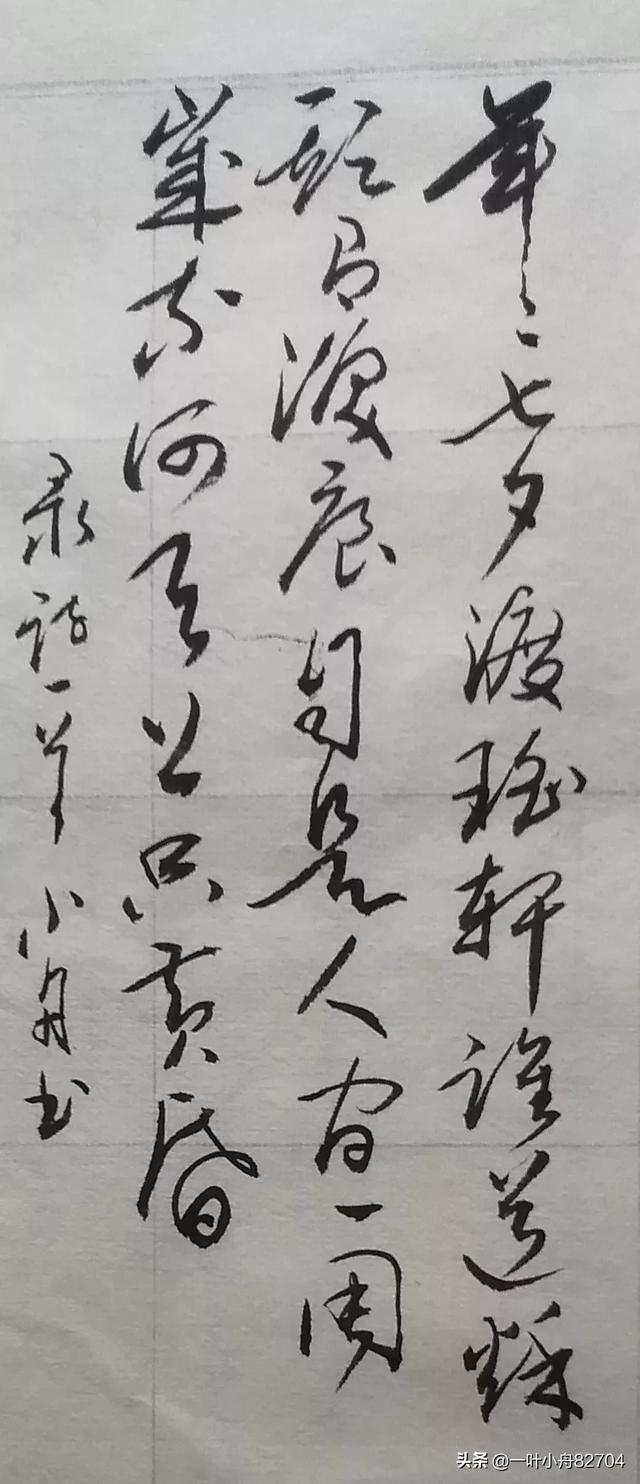 年々七夕渡瑶轩谁道秋
期有淚痕自是人间一周
歲何天上只黄昏
录诗一首 小舟书
头条 @一叶小舟82704